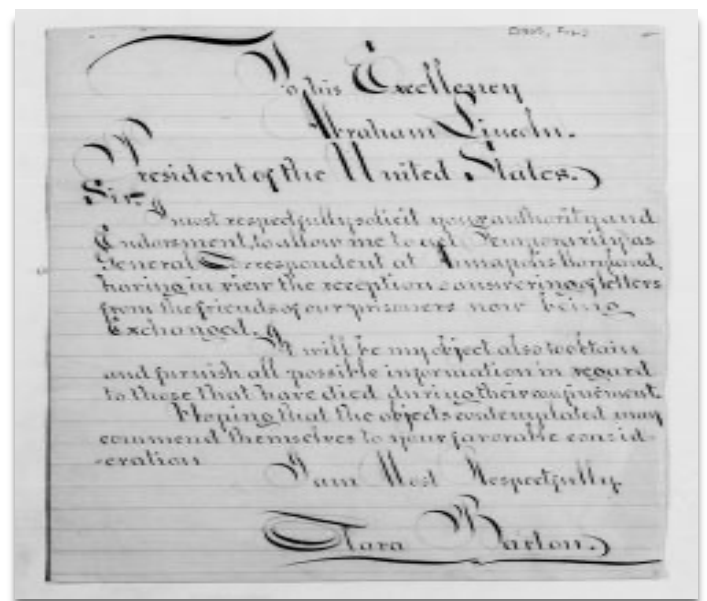 To his Excellency
Abraham Lincoln.
President of the United States.
Sir,
I most respectfully solicit your authority and
Endorsment, to allow me to act Temporarily as
General Correspondent at Annapolis Maryland,
having in view the reception & answering of letters
from the friends of our prisoners now being
Exchanged.
It will be my object also to obtain
and furnish all possible information in regard
to those that have died during their confinement.
Hoping that the objects contemplated may
commend themselves to your favorable consid-
-eration
I am Most Respectfully
Clara Barton.